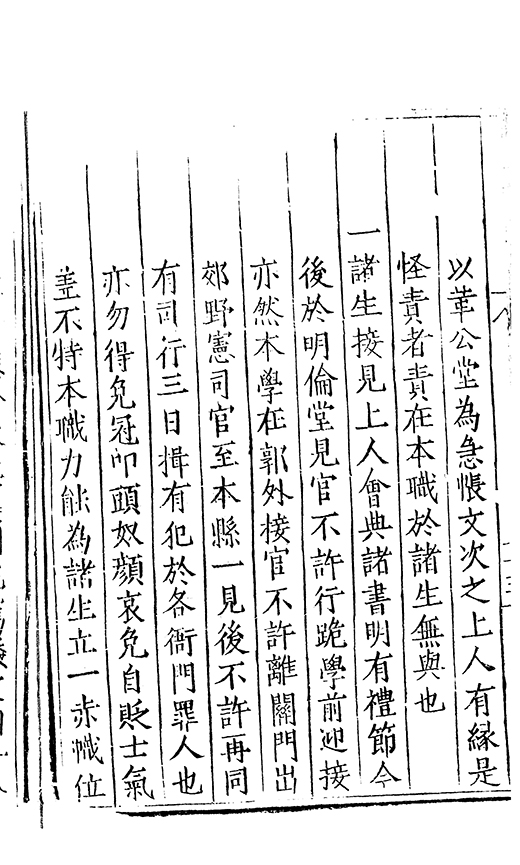 以革公堂為急悵文次之上人有緣是
怪責者責在本職於諸生無與也
一諸生接見上人會典諸書明有禮節今
後於明倫堂見官不許行跪學前迎接
亦然本學在郭外接官不許離關門出
郊野憲司官至本縣一見後不許再同
有司行三日揖有犯於各衙門罪人也
亦勿得免冠叩頭奴顏哀免自貶士氣
盖不特本職力能為諸生立一赤幟位